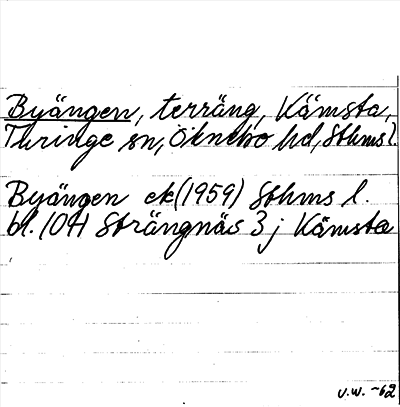 Byängen, terräng, Kämsta,
Turinge sn, Öknebo hd, Sthms l.
Byängen ek (1959) Sthms l.
bl. 10H Strängnäs 3 j Kämsta
U.W. -62